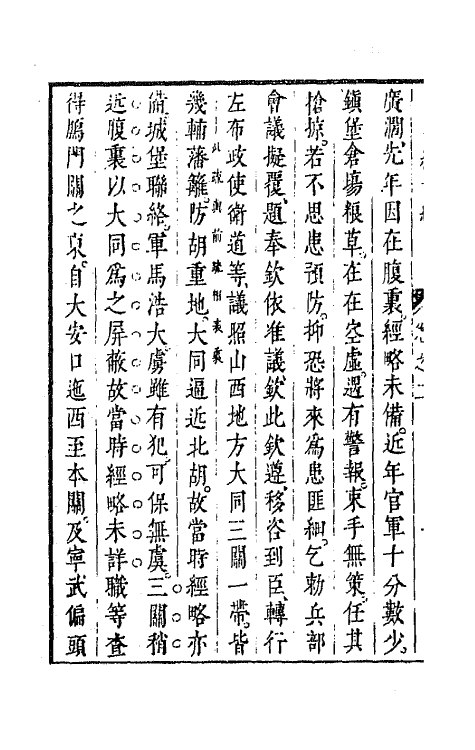 廣濶先年因在腹裏經略未備近年官軍十分數少
鎮堡倉塲粮草在在空虛遇有警報束手無策任其
搶掠若不思患預防抑恐將來爲患匪細乞勅兵部
會議擬覆題奉欽依准議欽此欽遵移咨到臣轉行
左布政使衛道等議照山西地方大同三關一帶皆
此疏與前疏相表裏
幾輔藩籬防胡重地大同逼近北胡故當時經略亦
備城堡聯絡軍馬浩大虜雖有犯可保無虞三關稍
近腹裏以大同爲之屏蔽故當時經略未詳職等查
得鴈門關之東自大安口迤西至本關及寧武偏頭